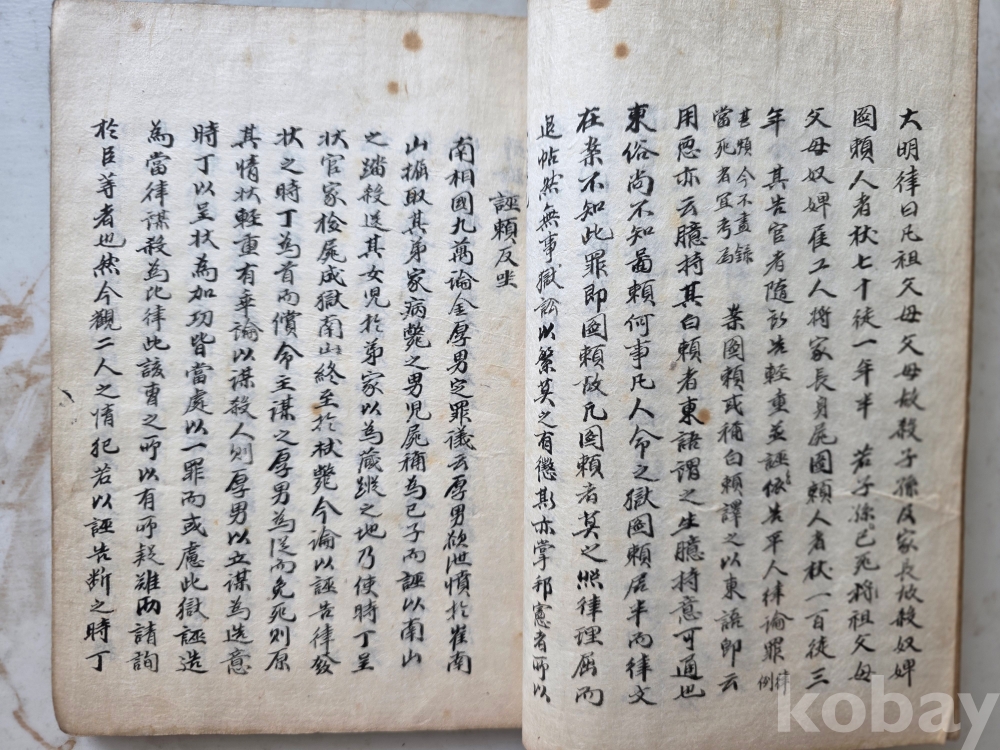 大明律曰凡祖父母父母故殺子孫及家長故殺奴婢
圖賴人者杖七十徒一年半 若子孫已死將祖父母
父母奴婢雇工人將家長身屍圖賴人者杖一百徒三
年 其告官者隨所告輕重並誣依告平人律論罪 律例
甚煩今不盡錄
當死者宜考焉
案圖賴或稱白賴譯之以東語卽云
用惡亦云臆持其白賴者東語謂之生臆持意可通也
東俗尚不知圖賴何事凡人命之獄圖賴居半而律文
在案不知此罪卽圖賴故凡圖賴者莫之照律理屈而
退帖然無事獄訟以繁莫之有懲斯亦掌邦憲者所以
誣賴反坐
南相國九萬論金厚男定罪議云厚男欲泄憤於崔南
山攝取其弟家病斃之男児屍稱為己子而誣以南山
之踏殺送其女児於弟家以為藏蹤之地乃使時丁呈
狀官家檢屍成獄南山終至於杖斃今論以誣告律發
狀之時丁為首而償命主謀之厚男為從而免死則原
其情狀輕重有乖論以謀殺人則厚男以立謀為造意
時丁以呈狀為加功皆當處以一罪而或慮此獄誣造
為當律謀殺為比律此該曹之所以有所疑難兩請詢
於臣等者也然今觀二人之情犯若以誣告斷之時丁
kobay